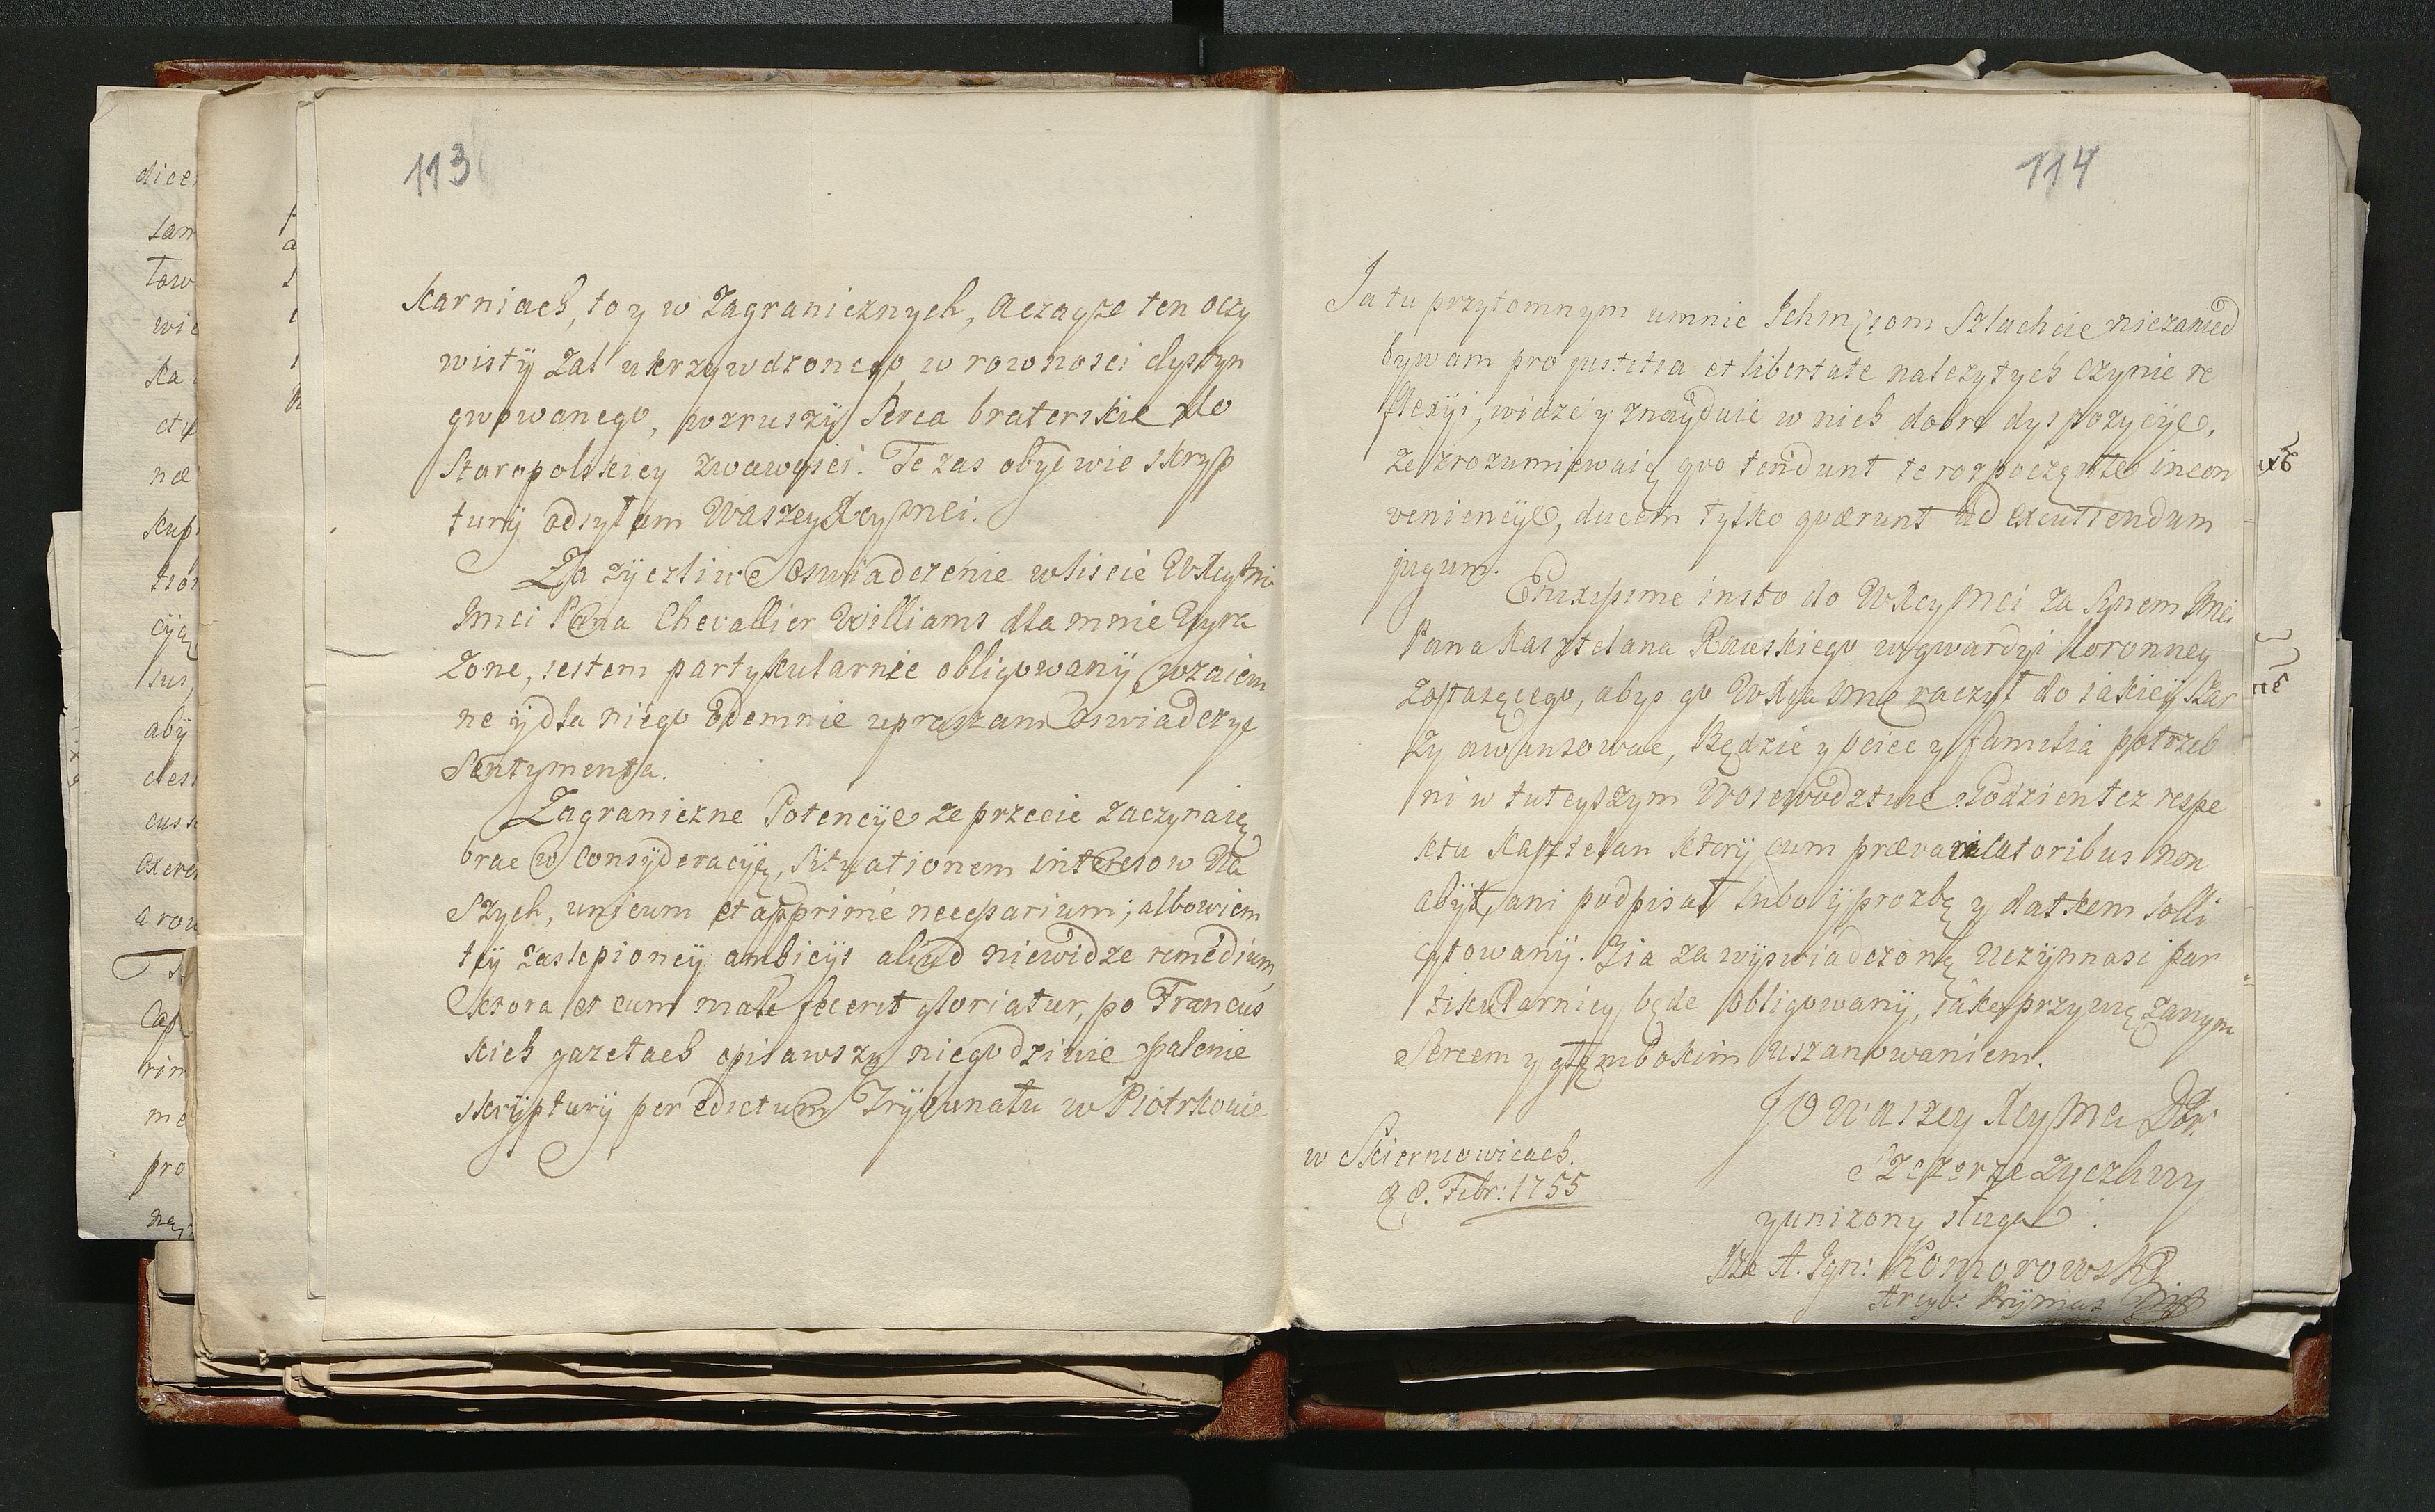 113
karniach, to y w Zagranicznych, aczayze ten oczy
wistÿ zal ukrzywdzonego w rownosci dystyn
gwowanego, wzruszÿ Serca braterskie do
Staropolskiey zwawosci. Te zas obydwie skryp
turÿ odsyłam Waszey Xcy Mci.
Za zÿczliwe oswiadczenie w liscie WXcy Mci
Jmci Pana Chevallier Williams dla mnie wyra
zone, iestem partykularnie obligowanÿ, wzaiem
ne ÿ dla niego odemnie upraszam oswiadczyc
Sentymenta.
Zagraniczne Potencÿe ze przecie zaczynaię
brac w consÿderacÿę, situationem interesow Na
szych, unicum et apprimé necessarium; albowiem
teÿ zaslepioneÿ ambicÿi aliud niewidze remedium
Ktora et cum malé fecerit gloriatur, po Francus
kich gazetach opisawszy niegodziwie palenie
skrÿpturÿ per edictum Trÿbunału w Piotrkowie
114
Ja tu przytomnym u mnie Ichmciom Szlachcie niezanied
bywam pro justitia et libertate nalezytych czynic re
flexÿi, widzé y znayduié w nich dobre dyspozycÿe,
ze zrozumiewaię quo tendunt te rozpoczęte incon
veniencÿe, ducem tylko quærunt ad excutiendum
jugum.
Enixissime insto do WXcy Mci za Synem Jmci
Pana Kasztelana Rawskiego w gwardyi Koronney
zostaięcego, abys go WXca Mć raczył do iakieÿ Szar
zy awansowac, Będzie y ociec y familia potrzeb
ni w tuteyszym Woiewodztwie. Godzien tez respe
ktu Kasztelan ktorÿ cum prævaricatoribus non
abÿt, ani podpisał lubo ÿ prozbę y datkem solli
cytowanÿ. J ia za wÿswiadczonę uczÿnnosc par
tykularniey będe obligowanÿ, iako przywięzanym
Sercem y głęmbokim uszanowaniem.
JO Waszey Xcy Mci Dobr:
Szczerze zyczliwy
y unizony sługa
Xze A. Ign: Komorowski
Arcyb: Prÿmas
w Skierniewicach.
d 8. Febr: 1755